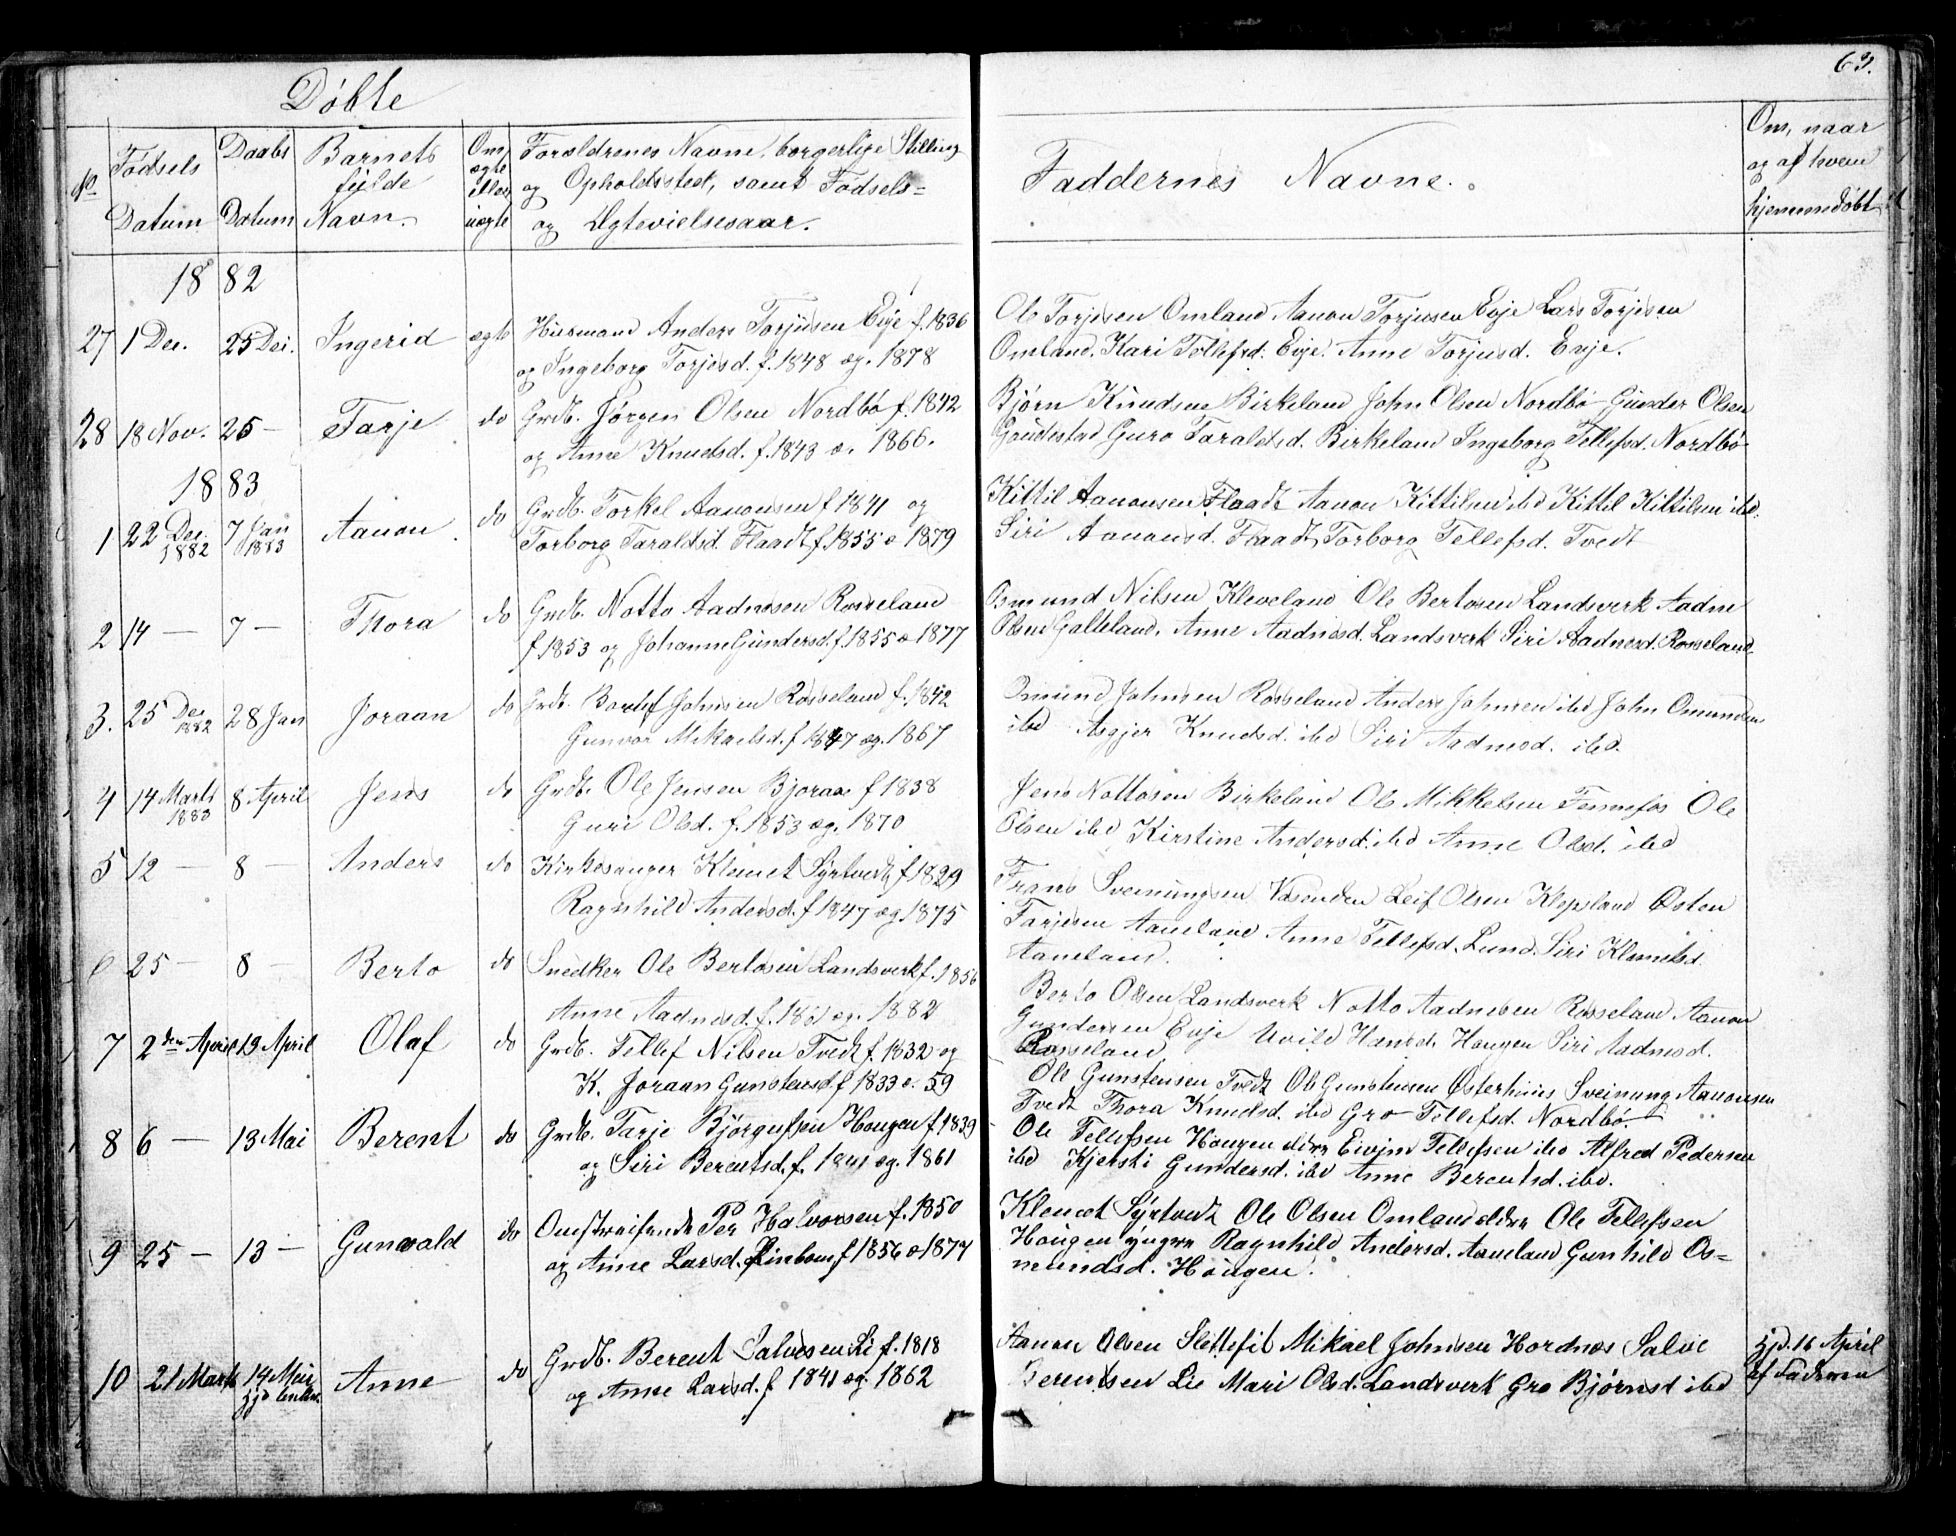 63.
Døbte
No Fødsels Datum
Daabs Datum
Barnets fulde Navn.
Om ægte eller uægte
Forældrenes Navne, borgerlige Stilling
og Opholdssted, samt Fødsels=
og Ægtevielsesaar.
Faddernes Navne.
Om, naar
og af hvem
hjemmedøbt
1882
27 1 Dec. 25 Dec. Ingerid ægte Husmand Anders Torjusen Evje f. 1836
og Ingeborg Torjesd. f. 1848 æg. 1878
Ole Torjesen Omland Aanon Torjusen Evje Lars Torjesen
Omland. Kari Tellefsd. Evje. Anne Torjusd. Evje.
28 18 Nov. 25 — Tarje do Grdb. Jørgen Olsen Nordbø f. 1842
og Anne Knudsd. f. 1843 æ. 1866.
Bjørn Knudsen Birkeland John Olsen Nordbø Gunder Olsen
Guro Taraldsd. Birkeland Ingeborg Tellefsd. Nordbø
1883
1 22 Dec. 1882 7 Jan 1883 Aanon do Grdb. Torkel Aanonsen f 1841 og
Torborg Taraldsd. Flaadt f. 1855 æ 1879
Kittil Aanonsen Flaadt Aanon Kittilsen ibd Kittil Kittilsen ibd.
Siri Aanonsd. Flaadt, Torborg Tellefsd. Tvedt
2 14 — 7 — Thora do Grdb. Notto Aadnesen Rosseland
f 1853 og Johanne Gundersd. f. 1855 æ 1877
Osmund Nilsen Kleveland Ole Bertosen Landsverk Aadne
Olsen Galteland. Anne Aadnesd. Landsverk Siri Aadnesd. Rosseland
3. 25 Dec 1882 28 Jan Joraan do Grdb. Johnsen Rosseland f. 1842
Gunvor Mikaelsd. f 1847 æg. 1867
Osmund Johnsen Rosseland Anders Johnsen ibd John Omundsen
ibd Asgjer Knudsd. ibd Siri Aadnesd. ibd.
4 14 Marts 1883 8 April Jens do Grdb. Ole Jensen Bjoraa f 1838
Guri Olsd. f. 1853 æg. 1870
Jens Nottosen Birkeland Ole Mikkelsen Fennefos Ole
Olsen ibd Kirstine Andersd. ibd Anne Olsd. ibd
5 12 — 8 — Anders do Kirkesanger Klemet Syrtvedt f 1829
Ragnhild Andersd. f 1847 æg 1875
Frans Sveinungsen Vasenden Leif Olsen Klepsland Østen
Tarjesen Aaneland Anne Tellefsd. Lund. Siri Klemetsd.
Aaneland.
6 25 — 8 — Berto do Snedker Ole Bertosen Landsverk f. 1856
Anne Aadnesd. f. æg. 1882
Berto Olsen Landsverk Notto Aadnesen Rosseland Aanon
Gundersen Evje Hansd. Hougen Siri Aadnesd.
Rosseland
7 2den April 19 April Olaf do Grdb. Tellef Nilsen Tvedt f. 1832 og
K. Joraan Gunstensd. f 1833 æ. 59
Ole Gunstensen Tvedt Ole Gunstensen Østerhuus Sveinung Aanonsen
Tvedt Thora Knudsd. ibd Gro Tellefsd. Nordbø.
8 6 — 13 Mai Berent do Grdb. Tarje Bjørgufsen Hougen f. 1839
og Siri Berentsd. f. 1841 æg. 1861
Ole Tellefsen Hougen eldre Eivind Tellefsen ibd Alfred Pedersen
ibd Kjersti Gundersd. ibd Anne Berentsd. ibd.
9 25 — 13 — Gunvald do Omstreifende Per Halvorsen f. 1850
og Anne Larsd. f 1856 æ 1877
Klemet Syrtvedt Ole Olsen Omland eldre Ole Tellefsen
Hougen yngre Ragnhild Andersd. Aaneland Gunhild Os=
mundsd. Hougen.
10 21 Marts 14 Mai Anne do Grdb. Berent Salvesen Li f. 1818
og Anne Larsd. f 1841 æg 1862
Aanon Olsen Slettefit Mikael Johnsen Hordnes Salve
Berentsen Lie Mari Olsd. Landsverk Gro Bjørnsd ibd
hjd. 16 April
af Faderen